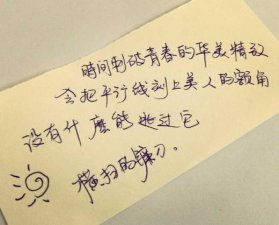 時間刺破青春的华美精致
会把平行线刻上美人的额角
没有什麼能逃过它
横扫的镰刀。